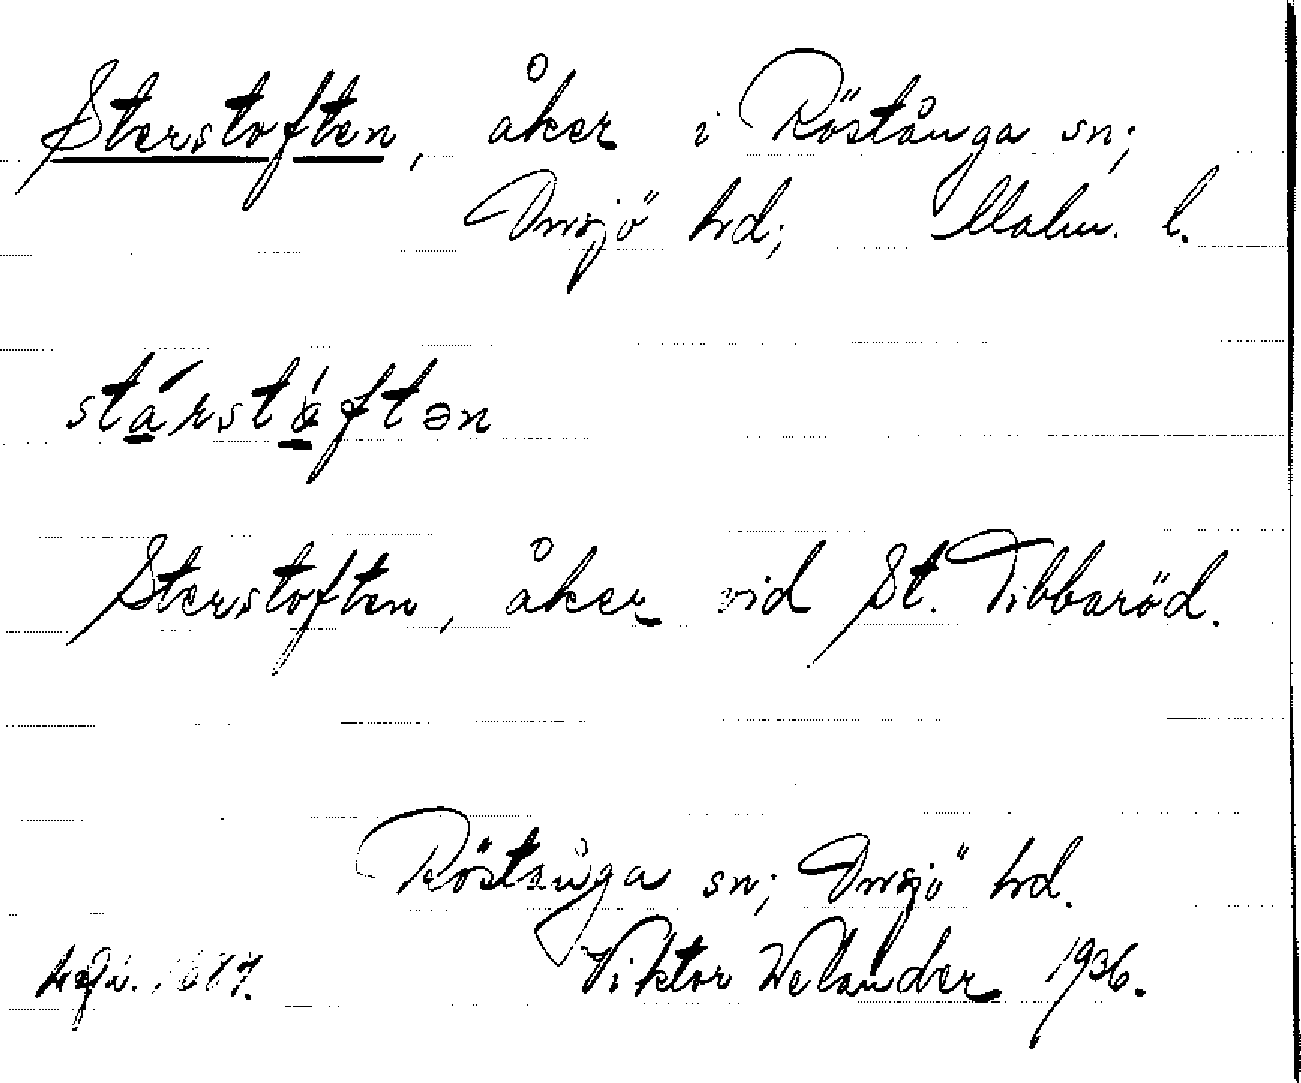 Sterstoften, åker i Röstånga sn;
Onsjö hd; Malm. l.
stárstáftən
Sterstoften, åker vid St. Tibbaröd.
Röstånga sn; Onsjö hd.
Viktor Welander 1936.